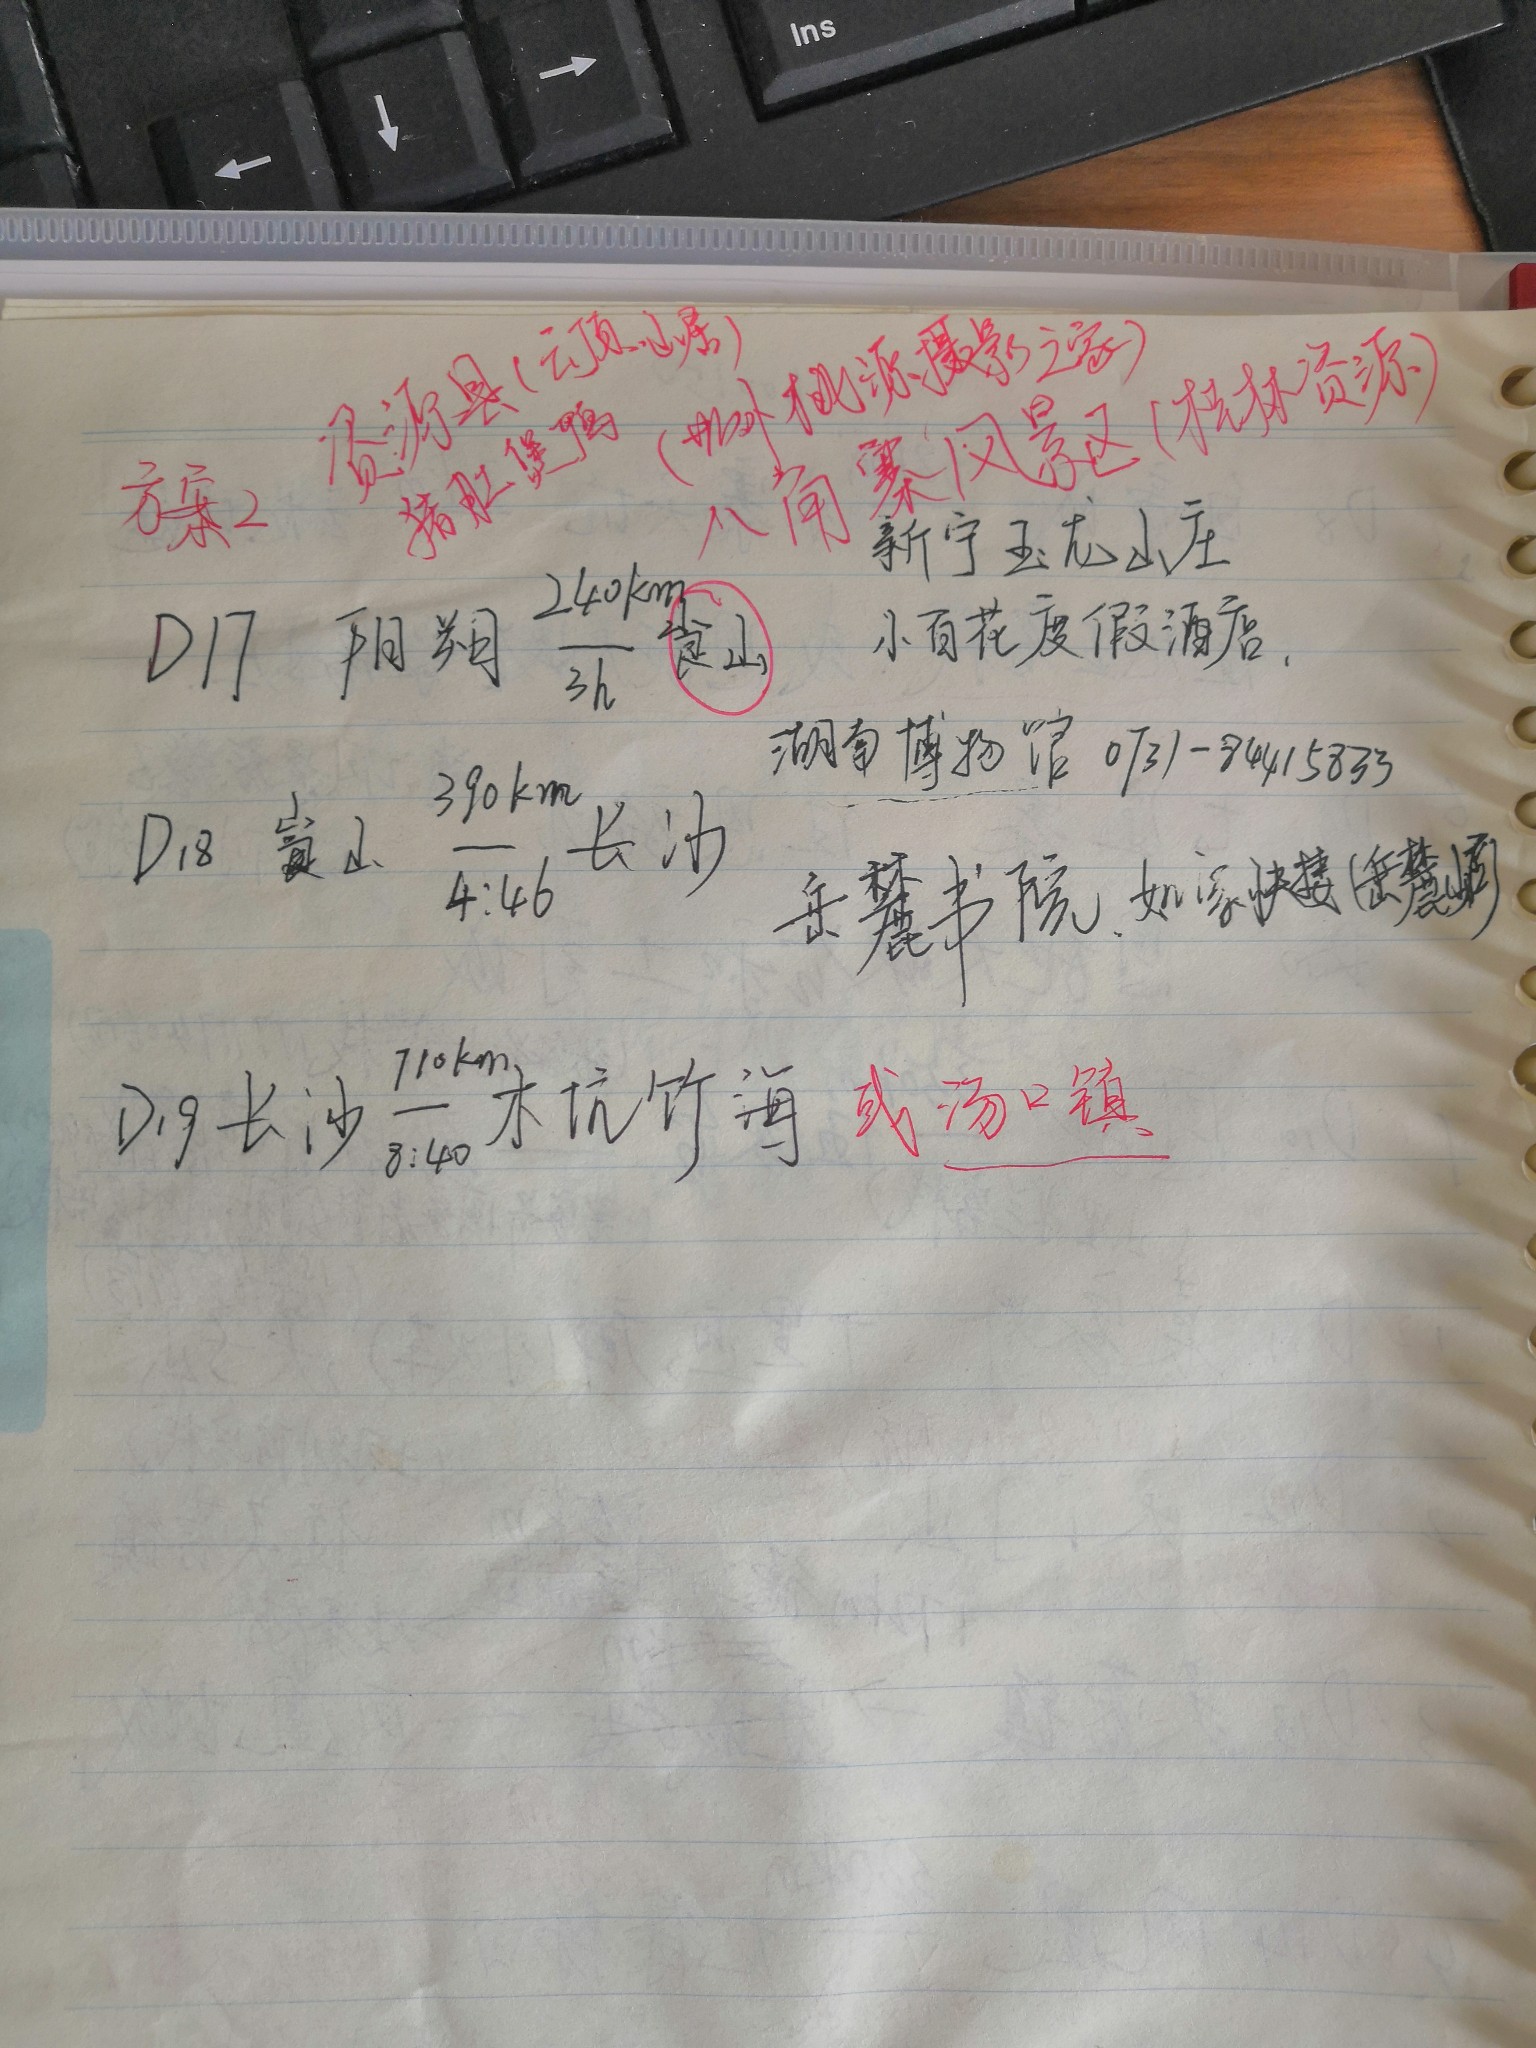 Ins
资源县(云顶山居)
(世外桃源摄影之家)
猪肚煲鸡
八角寨风景区(桂林资源)
方案2
新宁玉龙山庄
D17 阳朔 240km 3h 崀山
小百花度假酒店.
湖南博物馆 0731-84415833
D18 崀山 390km 4:46 长沙
岳麓书院. 如家快捷(岳麓山店)
D19 长沙 710km 8:40 木坑竹海 或汤口镇